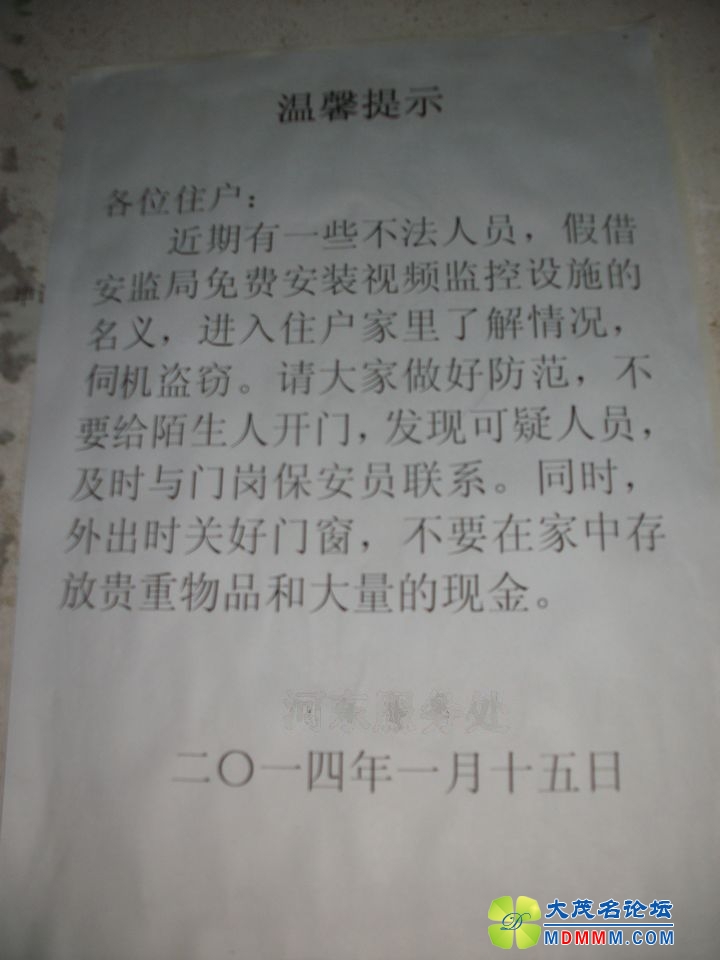 温馨提示
各位住户：
近期有一些不法人员，假借
安监局免费安装视频监控设施的
名义，进入住户家里了解情况，
伺机盗窃。请大家做好防范，不
要给陌生人开门，发现可疑人员，
及时与门岗保安员联系。同时，
外出时关好门窗，不要在家中存
放贵重物品和大量的现金。
河东服务处
二〇一四年一月十五日
大茂名论坛
MDMMM.COM